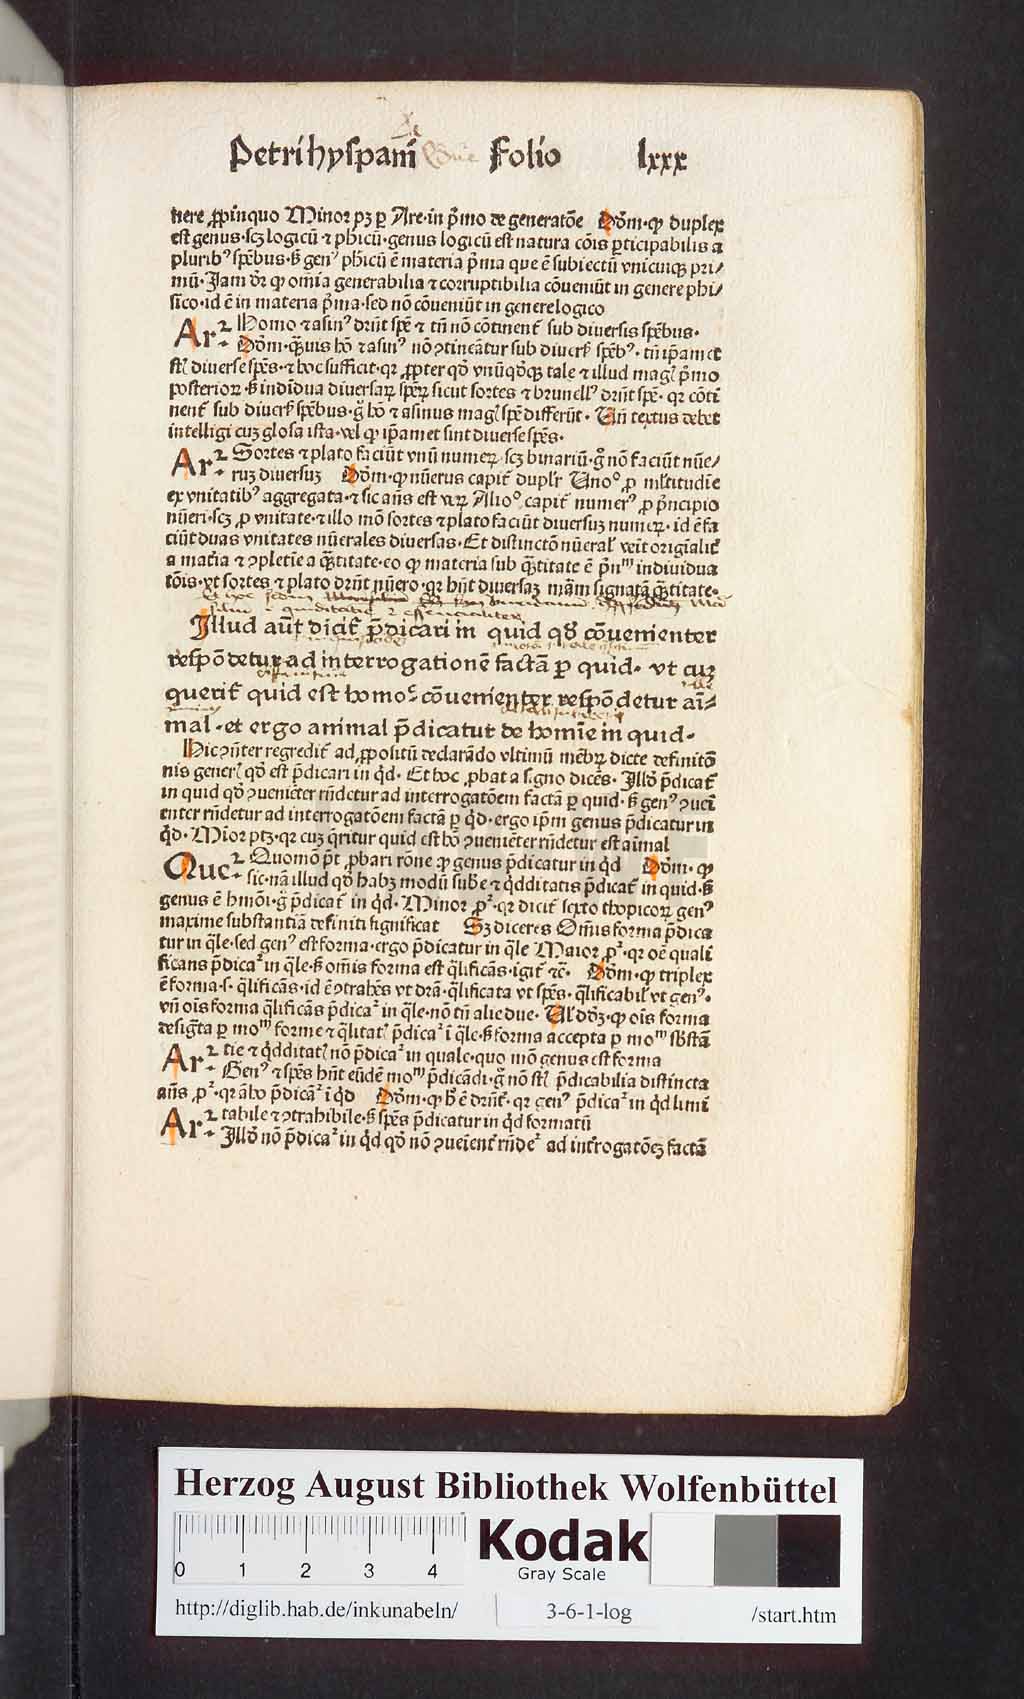 Petri hyspani Folio lxxx
nere ꝓpinquo Minor pꝫ ꝑ Are·in p̄mo de generatōe Dōm·ꝙ duplex
est genus·scꝫ logicū ⁊ phicū·genus logicū est natura cōis ꝑticipabilis a
pluribꝰ spēbus·s̄ genꝰ phicū ē materia p̄ma que ē subiectū vnicuiqꝫ pri⸗
mū·Jam dr̄ ꝙ om̄ia generabilia ⁊ corruptibilia cōueniūt in genere phi⸗
sico·id ē in materia p̄ma·sed nō cōueniūt in generelogico
Ar2· Homo ⁊ asinꝰ drn̄t spē ⁊ tn̄ nō cōtinent̄ sub diuersis spēbus·
Dōm·q̄uis hō ⁊ asinꝰ nō ꝯtineātur sub diuers̄ spēbꝰ· tn̄ ip̄amet
st̄ diuerse spēs·⁊ hoc sufficit·qꝛ ꝓpter qd̄ vnūqd̄qꝫ tale ⁊ illud maḡ p̄mo
posterioꝝ·s̄ indiuidua diuersaꝝ spēꝝ sicut sortes ⁊ brunellꝰ drn̄t spē· qꝛ cōti
nent̄ sub diuers̄ spēbus·g̊ hō ⁊ asinus maḡ spē differūt· Vn̄ textus debet
intelligi cuꝫ glosa ista·vel ꝙ ip̄amet sint diuerse spēs·
Ar2· Sortes ⁊ plato faciūt vnū numeꝝ·scꝫ binariū·g̊ nō faciūt nūe⸗
ruꝫ diuersuꝫ Dōm·ꝙ nūerus capit̄ dupl̄r Vnoº ꝓ ml̄titudīe
ex vnitatibꝰ aggregata·⁊ sic an̄s est veꝝ Alioº capit̄ numerꝰ ꝓ p̄ncipio
nūeri·scꝫ ꝓ vnitate·⁊ illo mō sortes ⁊ plato faciūt diuersuꝫ numeꝝ·id ē fa
ciūt duas vnitates nūerales diuersas·Et distinctōn nūeral̄ veīt originalit̄
a mat̄ia ⁊ ꝯpletīe a q̄titate·eo ꝙ materia sub q̄titate ē p̄nᵐ indiuidua
tōis·vt sortes ⁊ plato drn̄t nūero·qꝛ hn̄t diuersaꝫ māꝫ signatā q̄titate·
Jllud aūt dicit̄ p̄dicari in quid qd̄ cōuenienter
respōdetur ad interrogationē factā ꝑ quid· vt cuꝫ
querit̄ quid est homo: cōuenienter respōdetur aī⸗
mal·et ergo animal p̄dicatur de homīe in quid·
Hic ꝯn̄ter regredit̄ ad ꝓpositū declarādo vltimū mēbꝝ dicte definitō
nis gener̄ qd̄ est p̄dicari in qd̄· Et hoc ꝓbat a signo dicēs· Jllđ p̄dicat̄
in quid qd̄ ꝯueniēter rn̄detur ad interrogatōem factā ꝑ quid·s̄ genꝰ ꝯueī
enter rn̄detur ad interrogatōem factā ꝑ qd̄·ergo ip̄m genus p̄dicatur in
qd̄·Mīor ptꝫ·qꝛ cuꝫ q̄ritur quid est hō ꝯueniēter rn̄detur est aīmal
Que2· Quomō pt̄ ꝓbari rōne ꝙ genus p̄dicatur in qd̄ Dōm·ꝙ
sic·nā illud qd̄ habꝫ modū sub̄e ⁊ qd̄ditatis p̄dicat̄ in quid·s̄
genus ē hmōi·g̊ p̄dicat̄ in qd̄·Minor ꝓ²·qꝛ dicit̄ sexto thopicoꝝ genꝰ
maxime substantiā definiti significat Sꝫ diceres Om̄is forma p̄dica
tur in q̄le·sed genꝰ est forma·ergo p̄dicatur in q̄le Maior ꝓ²·qꝛ oē quali
ficans p̄dica² in q̄le·s̄ om̄is forma est q̄lificās·igit̄ ⁊c̄· Dōm·ꝙ triplex
ē forma·s·q̄lificās·id ē ꝯtrahēs vt dr̄a·q̄lificata vt spēs·q̄lificabil̄ vt genꝰ·
vn̄ oīs forma q̄lificās p̄dica² in q̄le·nō tn̄ alie due· Vl̄ dōꝫ·ꝙ oīs forma
desiḡta ꝑ moᵐ forme ⁊ q̄litat̄ p̄dica² ī q̄le·s̄ forma accepta ꝑ moᵐ sb̄stā
Ar2· tie ⁊ qd̄ditat̄ nō p̄dica² in quale·quo mō genus est forma
Genꝰ ⁊ spēs hn̄t eūdē moᵐ p̄dicādi·g̊ nō st̄ p̄dicabilia distincta
an̄s ꝓ²·qꝛ ābo p̄dicā² ī qd̄ Dōm·ꝙ ħ ē drn̄t·qꝛ genꝰ p̄dica² in qd̄ limi
Ar2· tabile ⁊ ꝯtrahibile·s̄ spēs p̄dicatur in qd̄ formatū
Jllđ nō p̄dica² in qd̄ qd̄ nō ꝯueīent̄ rn̄de² ad int̄rogatōeꝫ factā
Herzog August Bibliothek Wolfenbüttel
0 1 2 3 4
Kodak
Gray Scale
http://diglib.hab.de/inkunabeln/ 3-6-1-log /start.htm